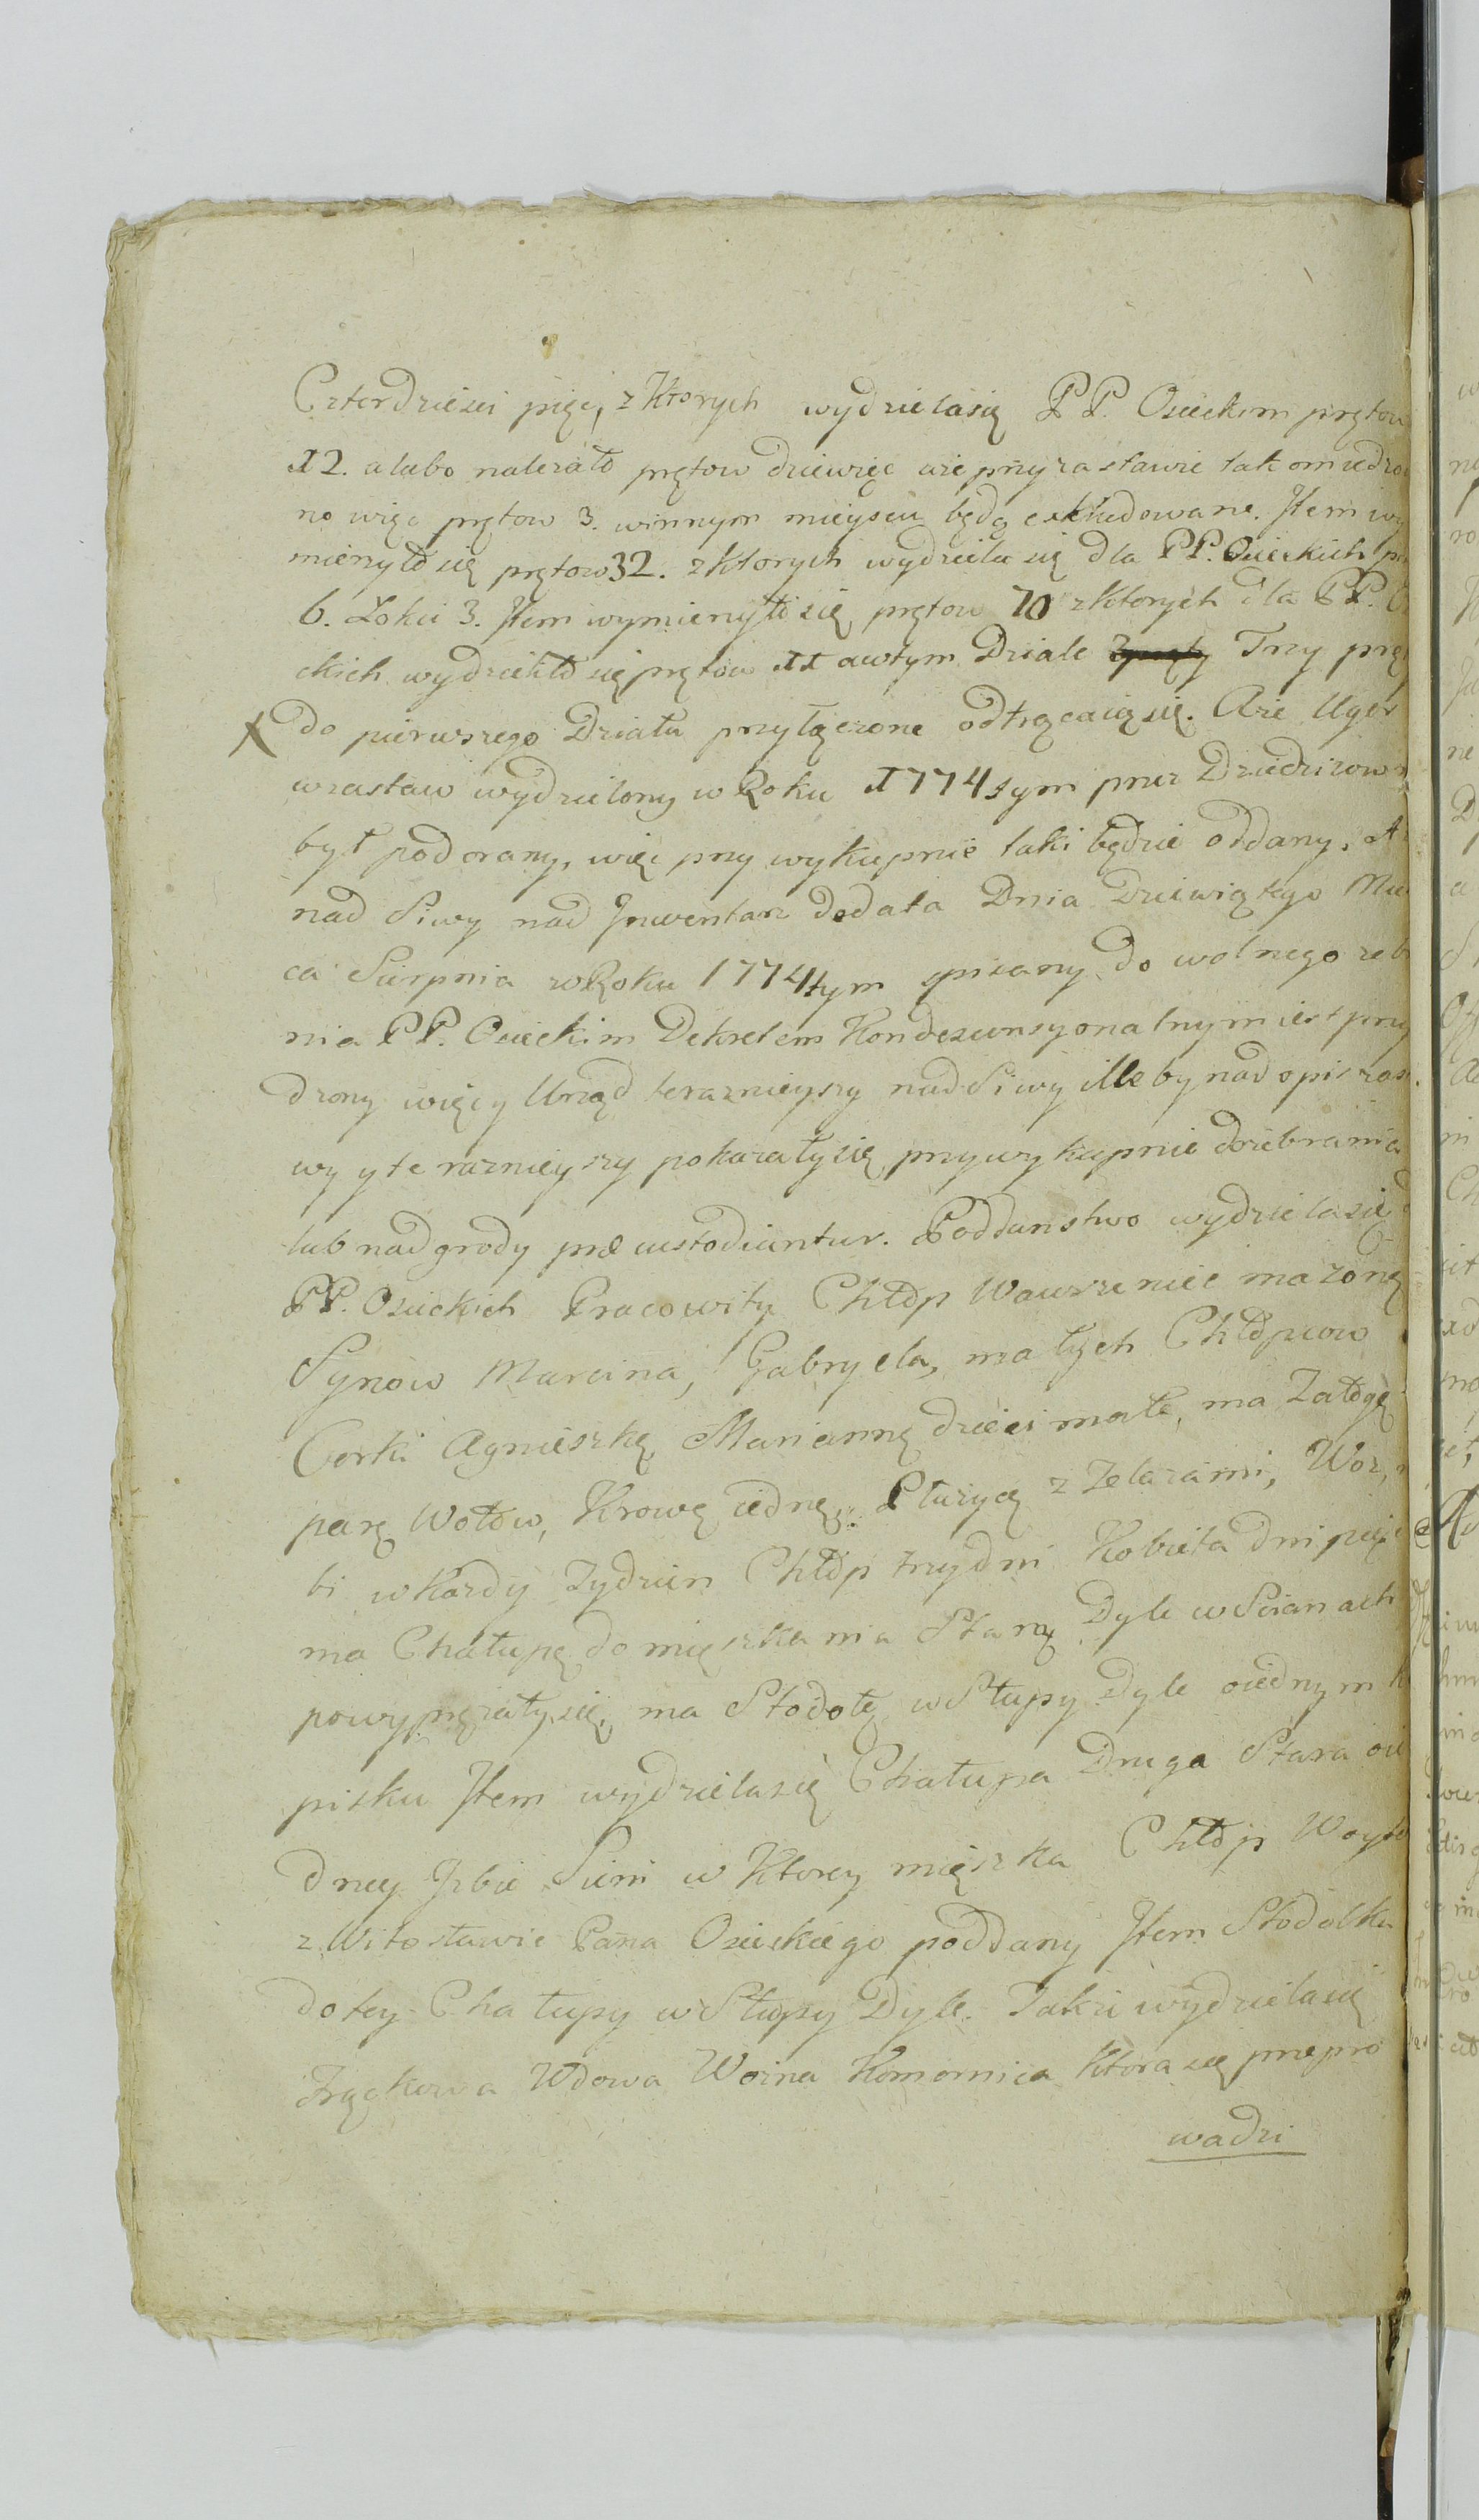 Czterdziesci pięc, z Ktorych wydziela się PP. Osieckim prętow
12. a lubo należało prętow dziewięc ale przy zastawie tak omiedzo
no więc prętow 3. w innym mieyscu będą exkludowane. Item wy
mierzyło się prętow 32. z ktorych wydziela się dla PP. Osieckich
6. Łokci 3. Item wymierzyło się prętow 70 z ktorych dla PP.
ckich wydzieliło się prętow 11 a w tym Dziale Trzy prę
X do pierwszego Działu przyłączone odtrącaią się. A że Ugor
w zastaw wydzielony w Roku 1774tym przez Dziedzicow
był podorany, więc przy wykupnie taki będzie oddany. A
nad Siwy nad Inwentarz dodata Dnia Dziewiątego Mie
ca Sierpnia w Roku 1774tym spisany do wolnego zebra
nia PP. Osieckim Dekretem Kondescensyonalnym iest przy
dzony więc y Urząd terazniejszy nad Siwy ille by nad opis zas
wy y terazniejszy pokazały się przy wykupnie do zebrania
lub nadgrody præcustodiuntur. Poddanstwo wydziela się
PP. Osieckich Pracowity Chłop Wawrzeniec ma żonę
Synow Marcina, Gabryela, małych Chłopcow
Corki Agnieszkę Mariannę dzieci małe, ma Załogę
parę Wołow, Krowę iednę, Płużycę z Żelazami, Woz,
bi w Każdy Tydzien Chłop trzy dni Kobieta dni pięc
ma Chałupę do mięszkania Starą Dyle w Scianach
powyprężały się, ma Stodołę w Słupy Dyle o iednym
pisku Item wydziela się Chałupa Druga Stara o ie
dney Izbie Sieni w Ktorey mięszka Chłop Woyte
z Witosławic Pana Osieckiego poddany Item Stodołka
do tey Chałupy w Słupy Dyle. Także wydziela się
Frąckowa Wdowa Wolna Komornica Ktora się przepro
wadzi